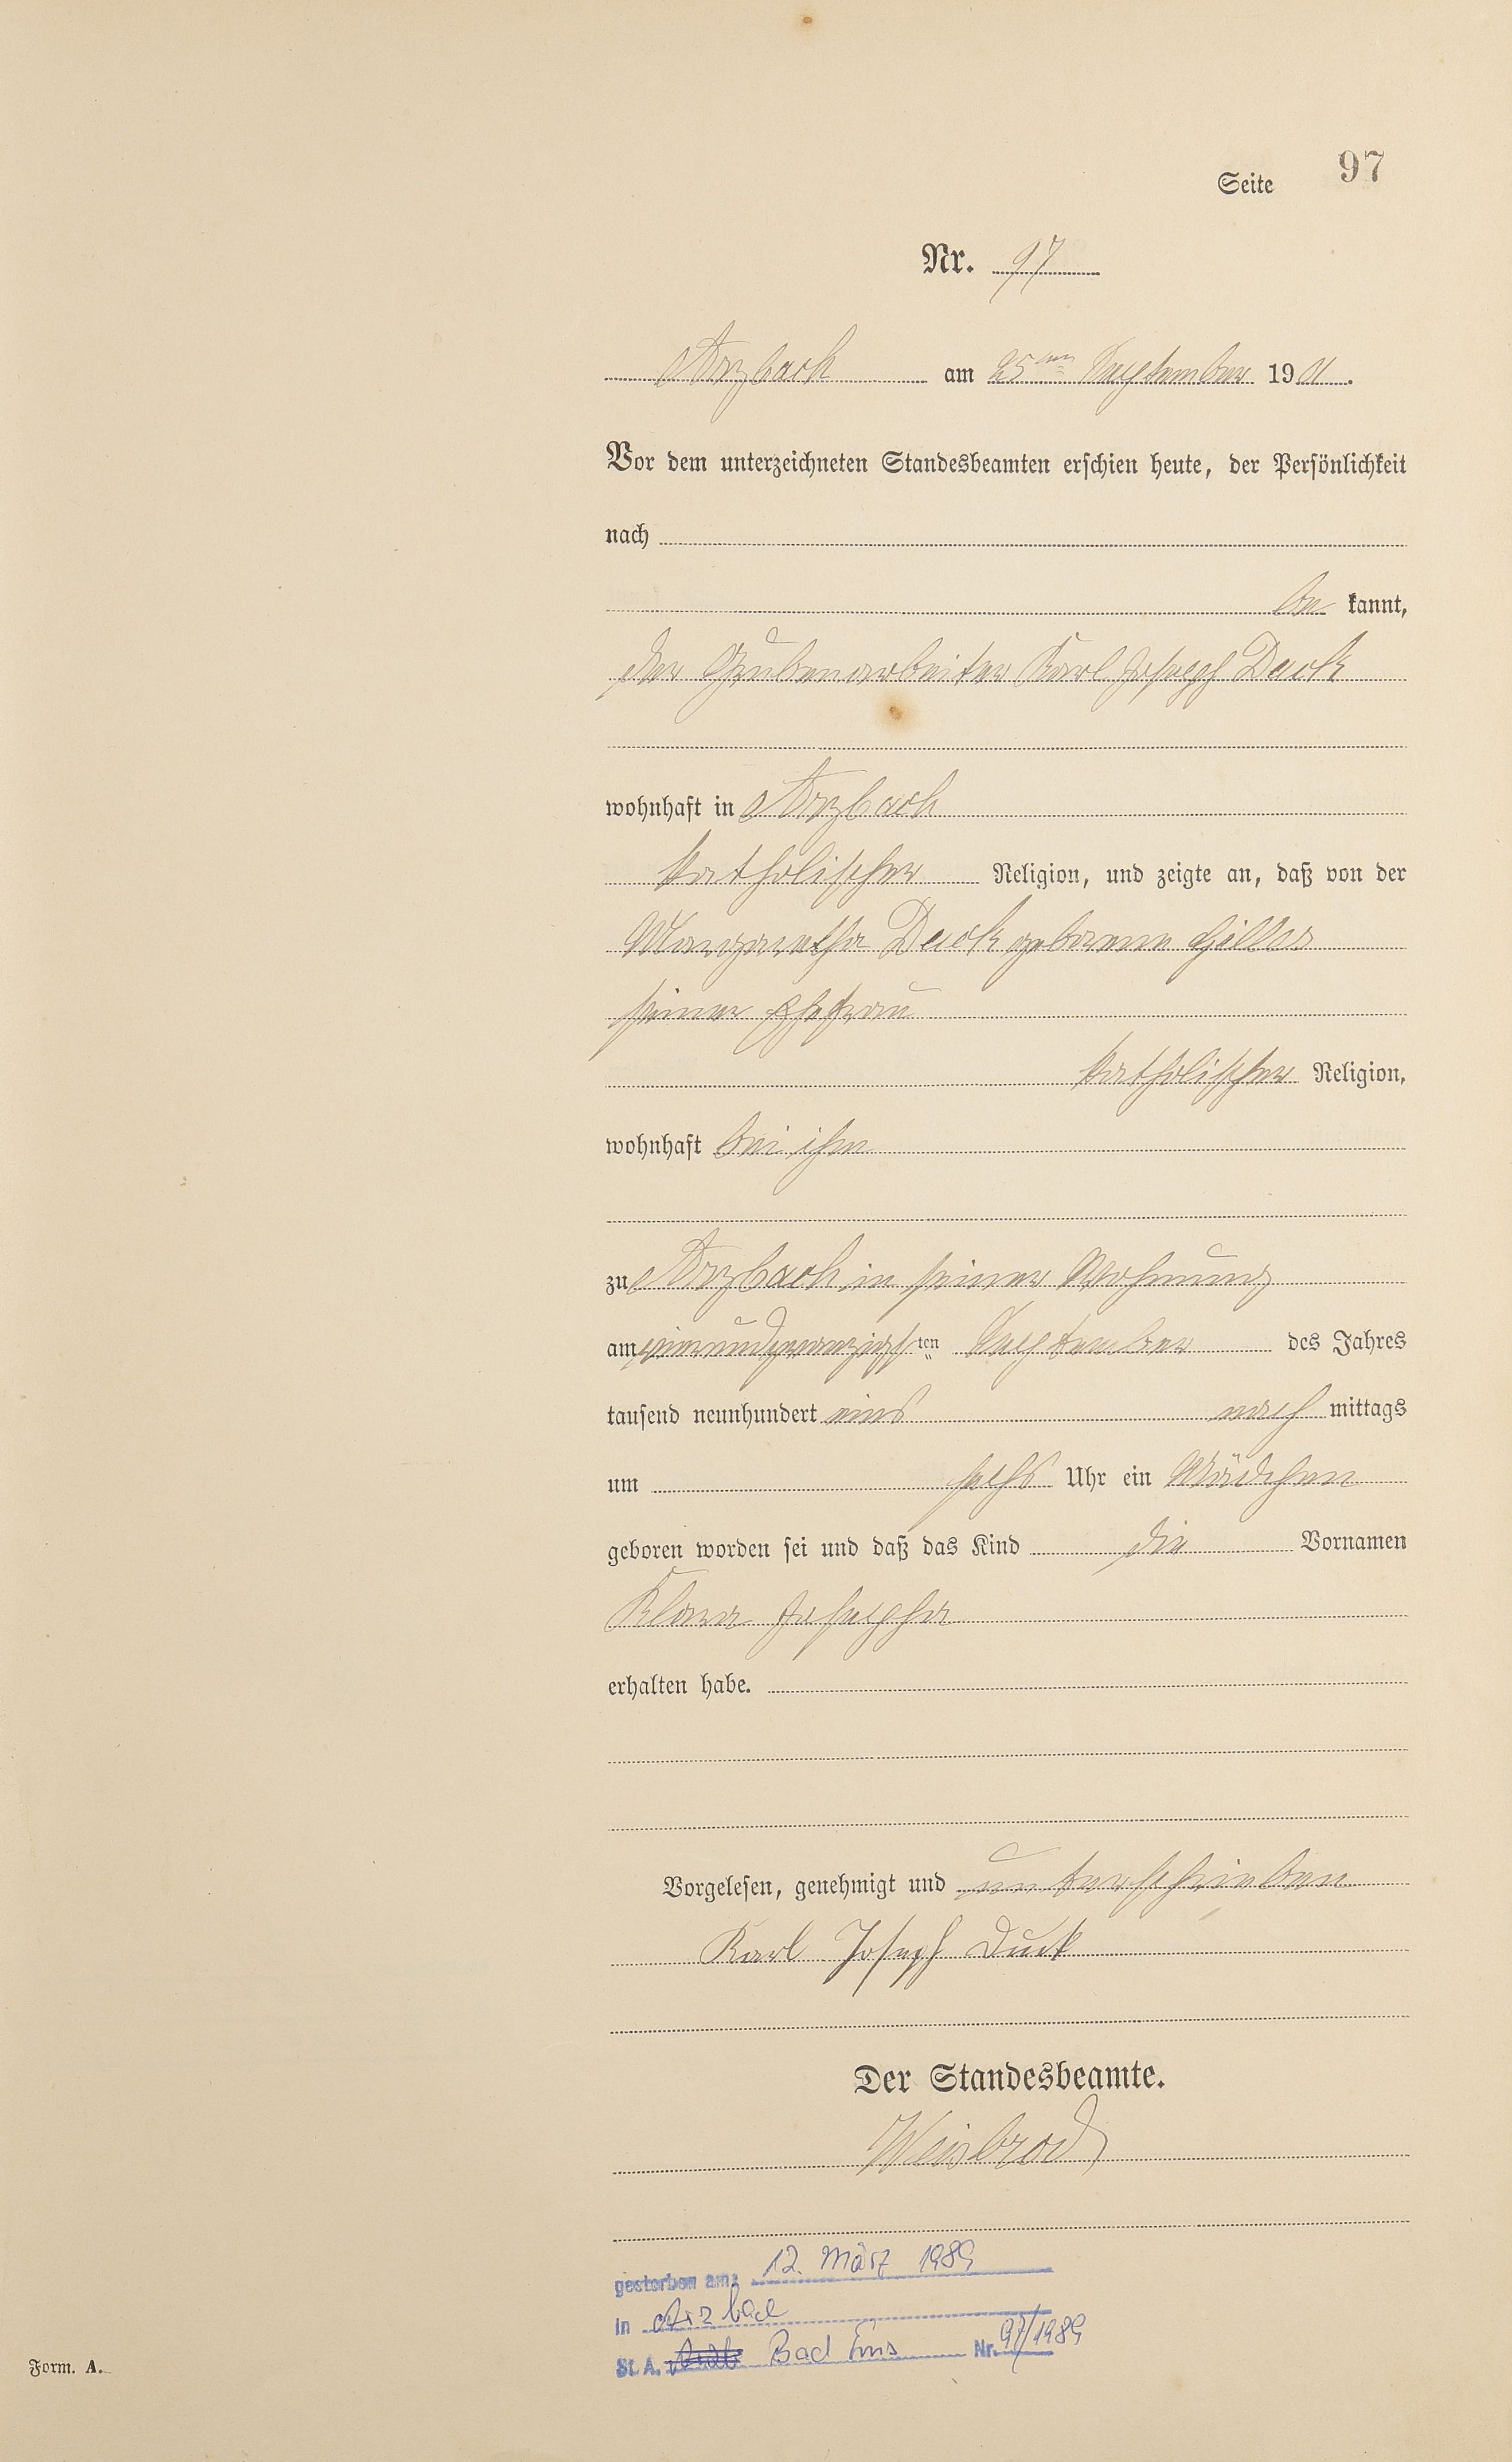 Seite 97
Nr. 97
Arzbach am 25ten September 1901.
Vor dem unterzeichneten Standesbeamten erschien heute, der Persönlichkeit
nach
be kannt,
der Grubenarbeiter Karl Joseph Duck
wohnhaft in Arzbach
katholischer Religion, und zeigte an, daß von der
Margaretha Duck geborene
seiner Ehefrau
katholischer Religion,
wohnhaft bei ihm
zu Arzbach in seiner Wohnung
am vierundzwanzigsten September des Jahres
tausend neunhundert eins nach mittags
um sechs Uhr ein Mädchen
geboren worden sei und daß das Kind die Vornamen
Klara Josepha
erhalten habe.
Vorgelesen, genehmigt und unterschrieben
Karl Joseph Duck
Der Standesbeamte.
Weisbrod
gestorben am: 12. März 1989
in Arzbach
St. A. Bad Ems Nr. 97/1989
Form. A.